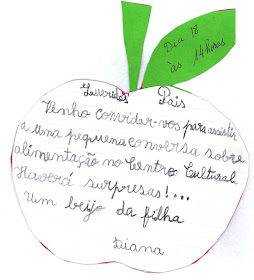 Dia 18
às 14 horas
Queridos Pais
Venho convidar-vos para assistir
a uma pequena conversa sobre
alimentação no Centro Cultural.
Haverá surpresas!...
Um beijo da filha
Diana